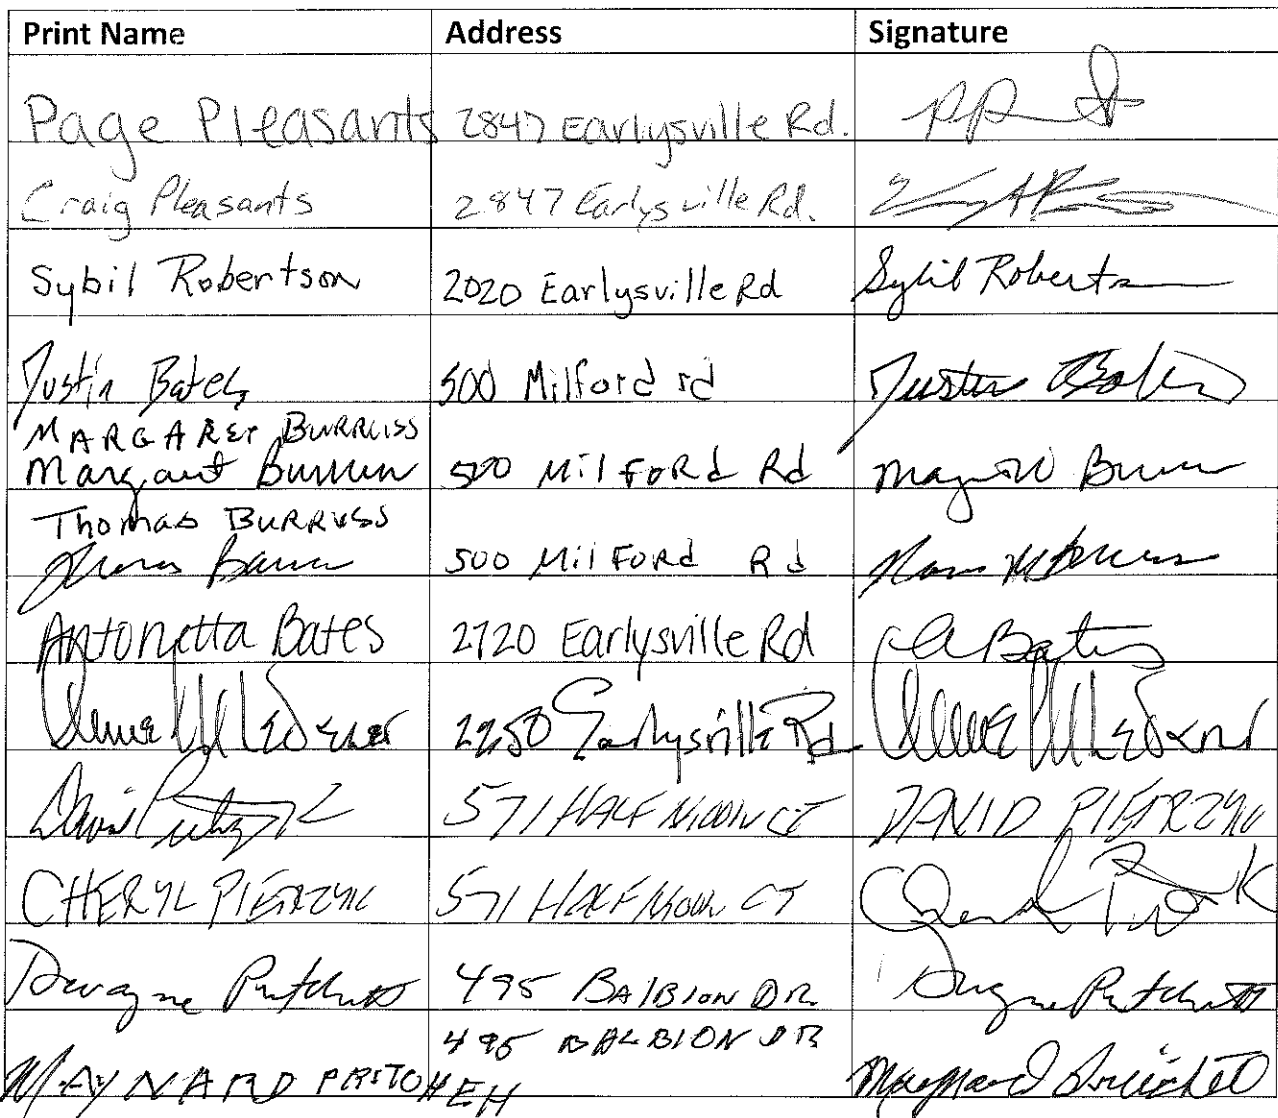 Print Name Address Signature
Page Pleasants 2847 Earlysville Rd.
Craig Pleasants 2847 Earlysville Rd.
Sybil Robertson 2020 Earlysville Rd Sybil Robertson
Justin Bates 500 Milford rd Justin Bates
MARGARET BURRUSS
Margaret Burruss 500 Milford Rd
Thomas BURRUSS
Thomas Burruss 500 Milford Rd
Antonetta Bates 2720 Earlysville Rd A Bates
2250 Earlysville Rd
David Pietrzyk 571 HALF MOON CT DAVID PIETRZYK
CHERYL PIETRZYK 571 HALF MOON CT
Dwayne Pritchett 495 BALBION DR. Dwayne Pritchett
495 BALBION DR
MAYNARD Maynard Pritchett